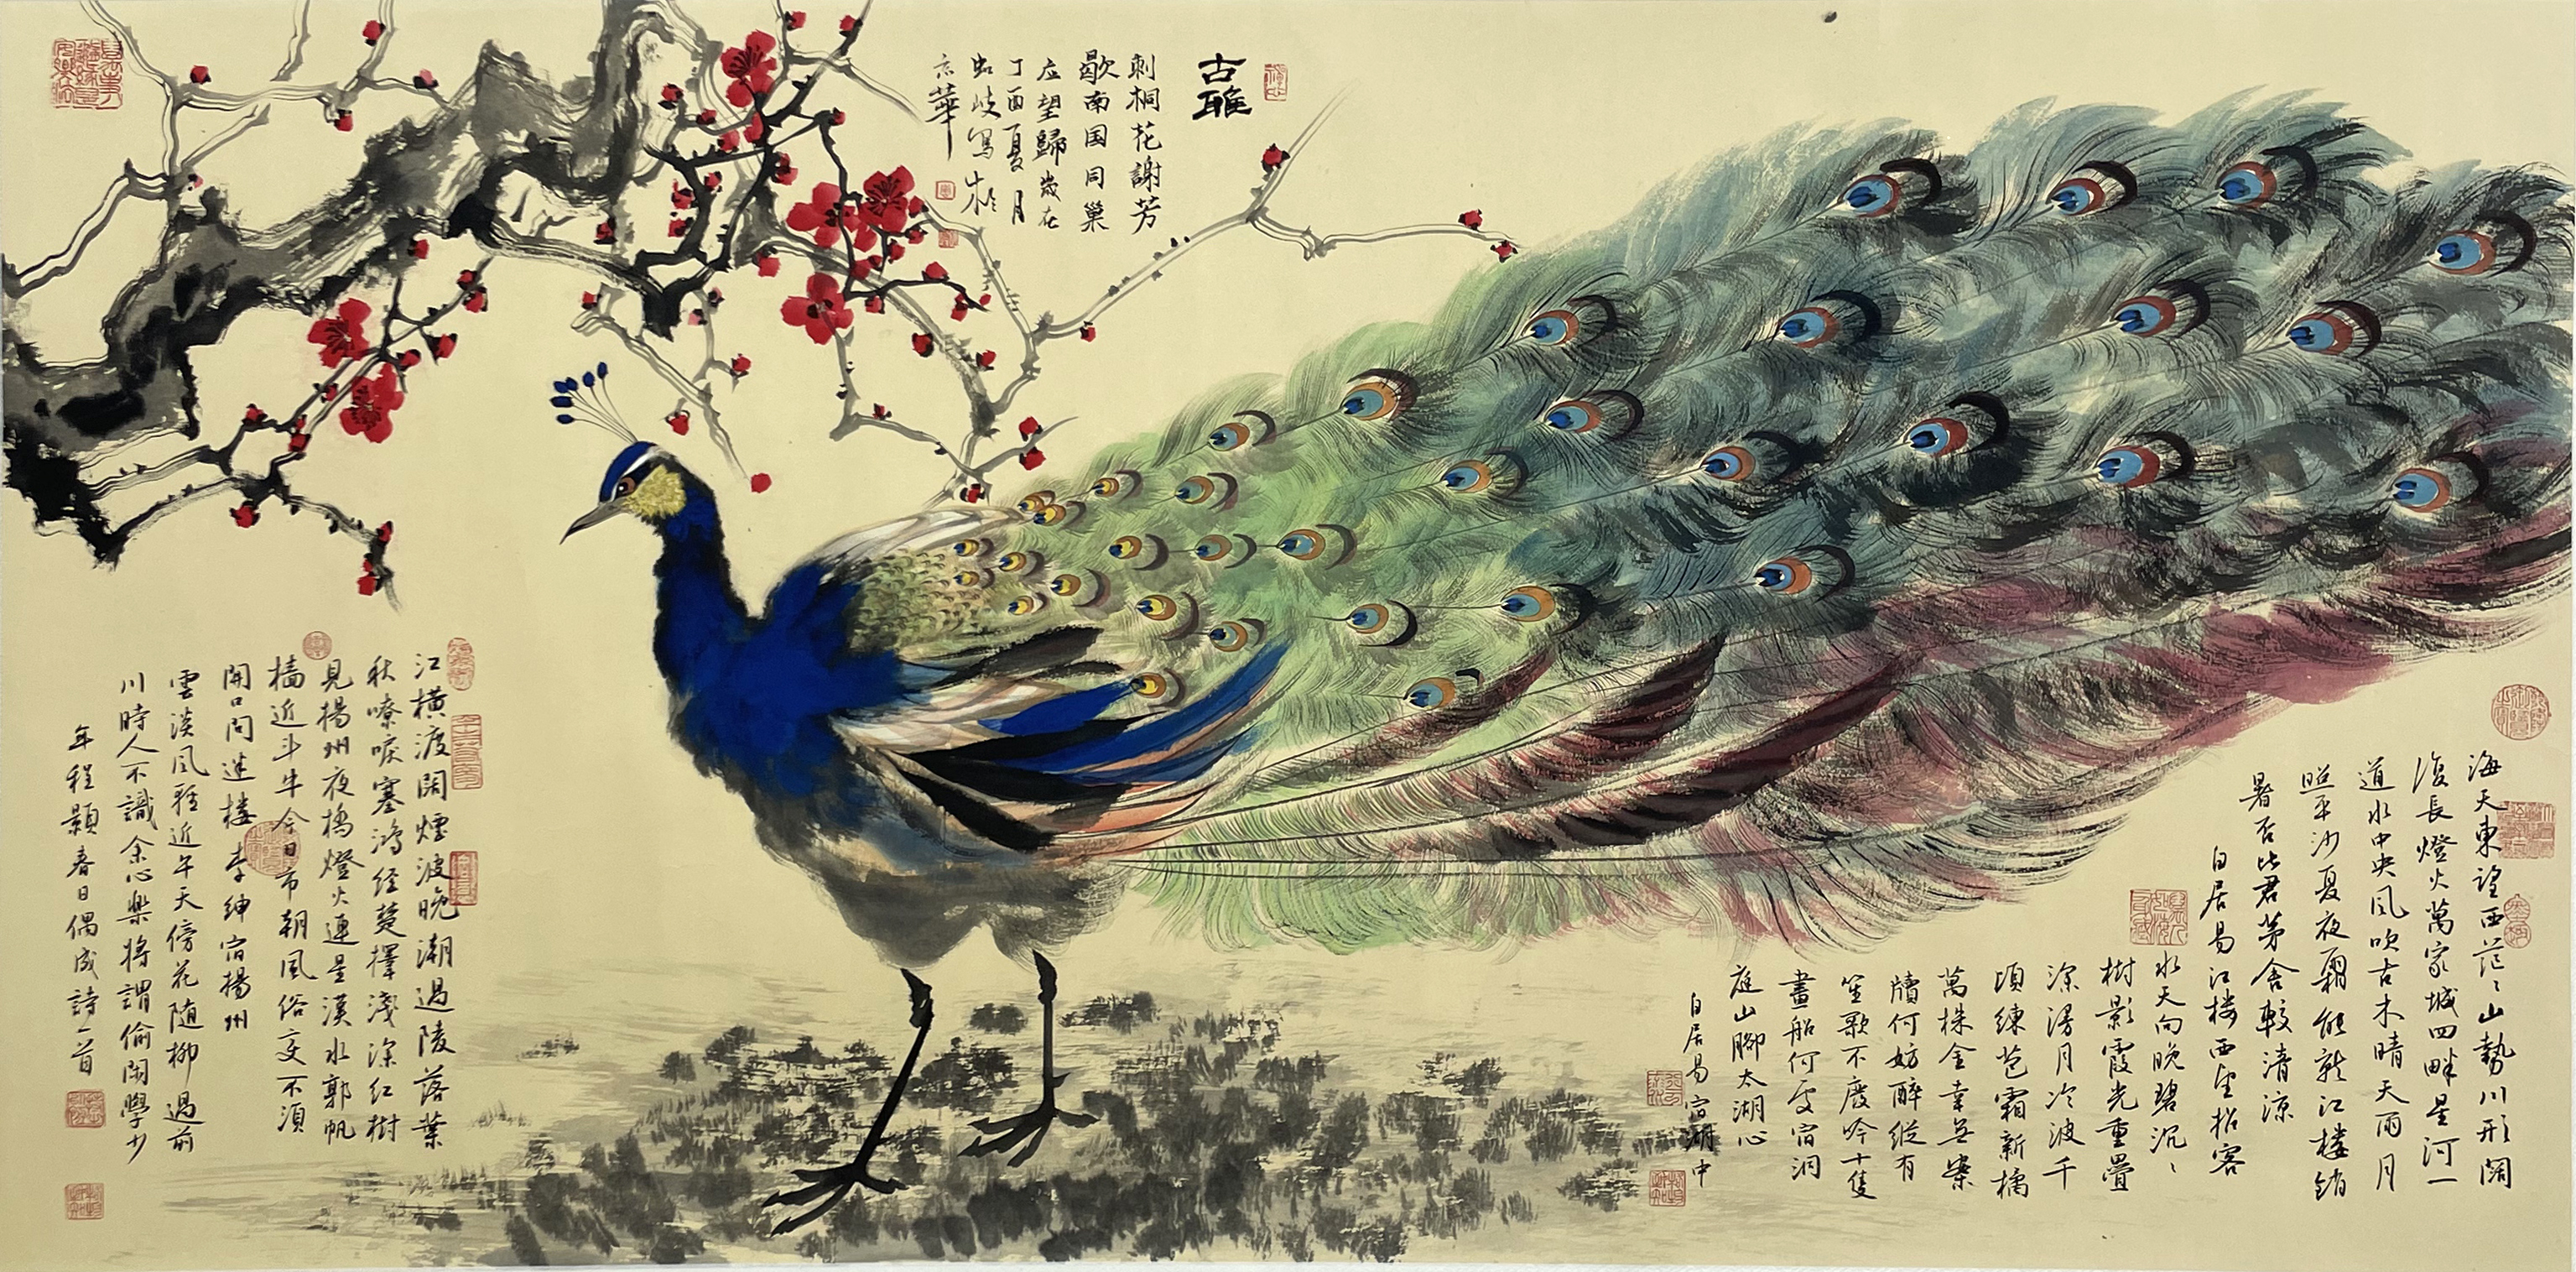 古雅
刺桐花謝芳
歇南国同巢
应望歸歲在
丁酉夏月
岐写於
京華
海天東望西茫〻山勢川形闊
復長燈火萬家城四畔星河一
道水中央風吹古木晴天雨月
照平沙夏夜霜能就江楼銷
暑否比君茅舍較清涼
白居易江楼西望招客
水天向晚碧沉〻
樹影霞光重疊
深浸月冷波千
頃練苞霜新橘
萬株金幸無案
牘何妨醉縱有
笙歌不廢吟十隻
畫船何处宿洞
庭山腳太湖心
白居易宿湖中
江橫渡闊煙波晚潮過陵落葉
秋嘹唳塞鴻经楚擇淺深红樹
見揚州夜橋燈火連星漢水郭帆
檣近斗牛今日市朝風俗变不须
開口问迷楼李紳宿揚州
雲淡風轻近午天傍花随柳過前
川時人不識余心樂將謂偷闲學少
年程顥春日偶成詩一首